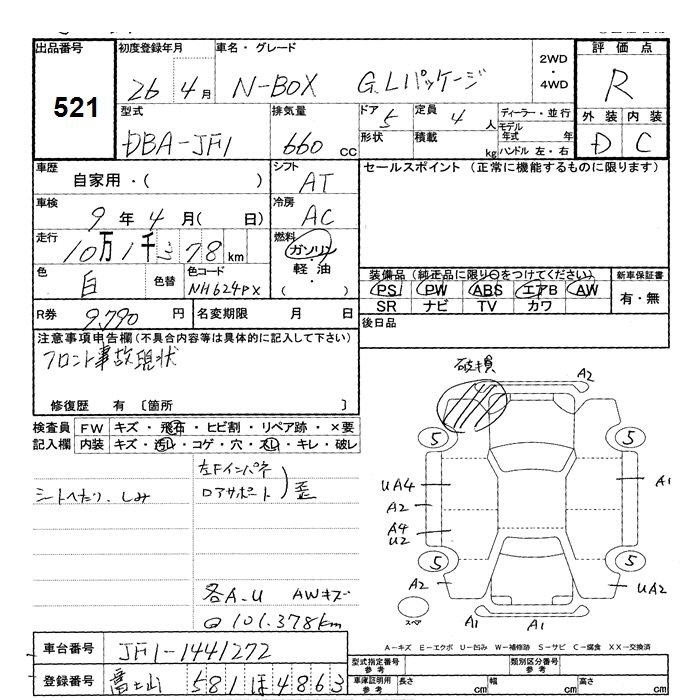 出品番号 初度登録年月 車名・グレード 2WD・4WD 評価点
521 26 4月 N-BOX G.Lパッケージ R
型式 排気量 ドア 5 定員 4人 ディーラー・並行 外装 内装
DBA-JF1 660 cc 形状 積載 kg モデル年式 年 ハンドル 左・右 D C
車歴 自家用・( ) シフト AT セールスポイント (正常に機能するものに限ります)
車検 9年 4月( 日) 冷房 AC
走行 10万1千378km 燃料 ガソリン・軽油 ( )
色 白 色替 色コード NH624PX
装備品 (純正品に限り○をつけてください) 新車保証書
PS PW ABS エアB AW 有・無
SR ナビ TV カワ
R券 9,790円 名変期限 月 日 後日品
注意事項申告欄(不具合内容等は具体的に記入して下さい)
フロント事故現状
修復歴 有 〔箇所 〕
検査員 FW キズ・飛石・ヒビ割・リペア跡・×要
記入欄 内装 キズ・汚れ・コゲ・穴・スレ・キレ・破レ
左Fインパネ
ロアサポート ) 歪
シートへたり、しみ
各A.U AWキズ
101.378km
破損 A2
5 5
UA4 A1
A2
A4
U2
5 5
A2 UA2
スペア A1 A1
A-キズ E-エクボ U-凹み W-補修跡 S-サビ C-腐食 XX-交換済
車台番号 JF1-1441272
登録番号 富士山 581 ほ 4863
型式指定番号 参考 類別区分番号 参考
車庫証明用 参考 長さ cm 幅 cm 高さ cm